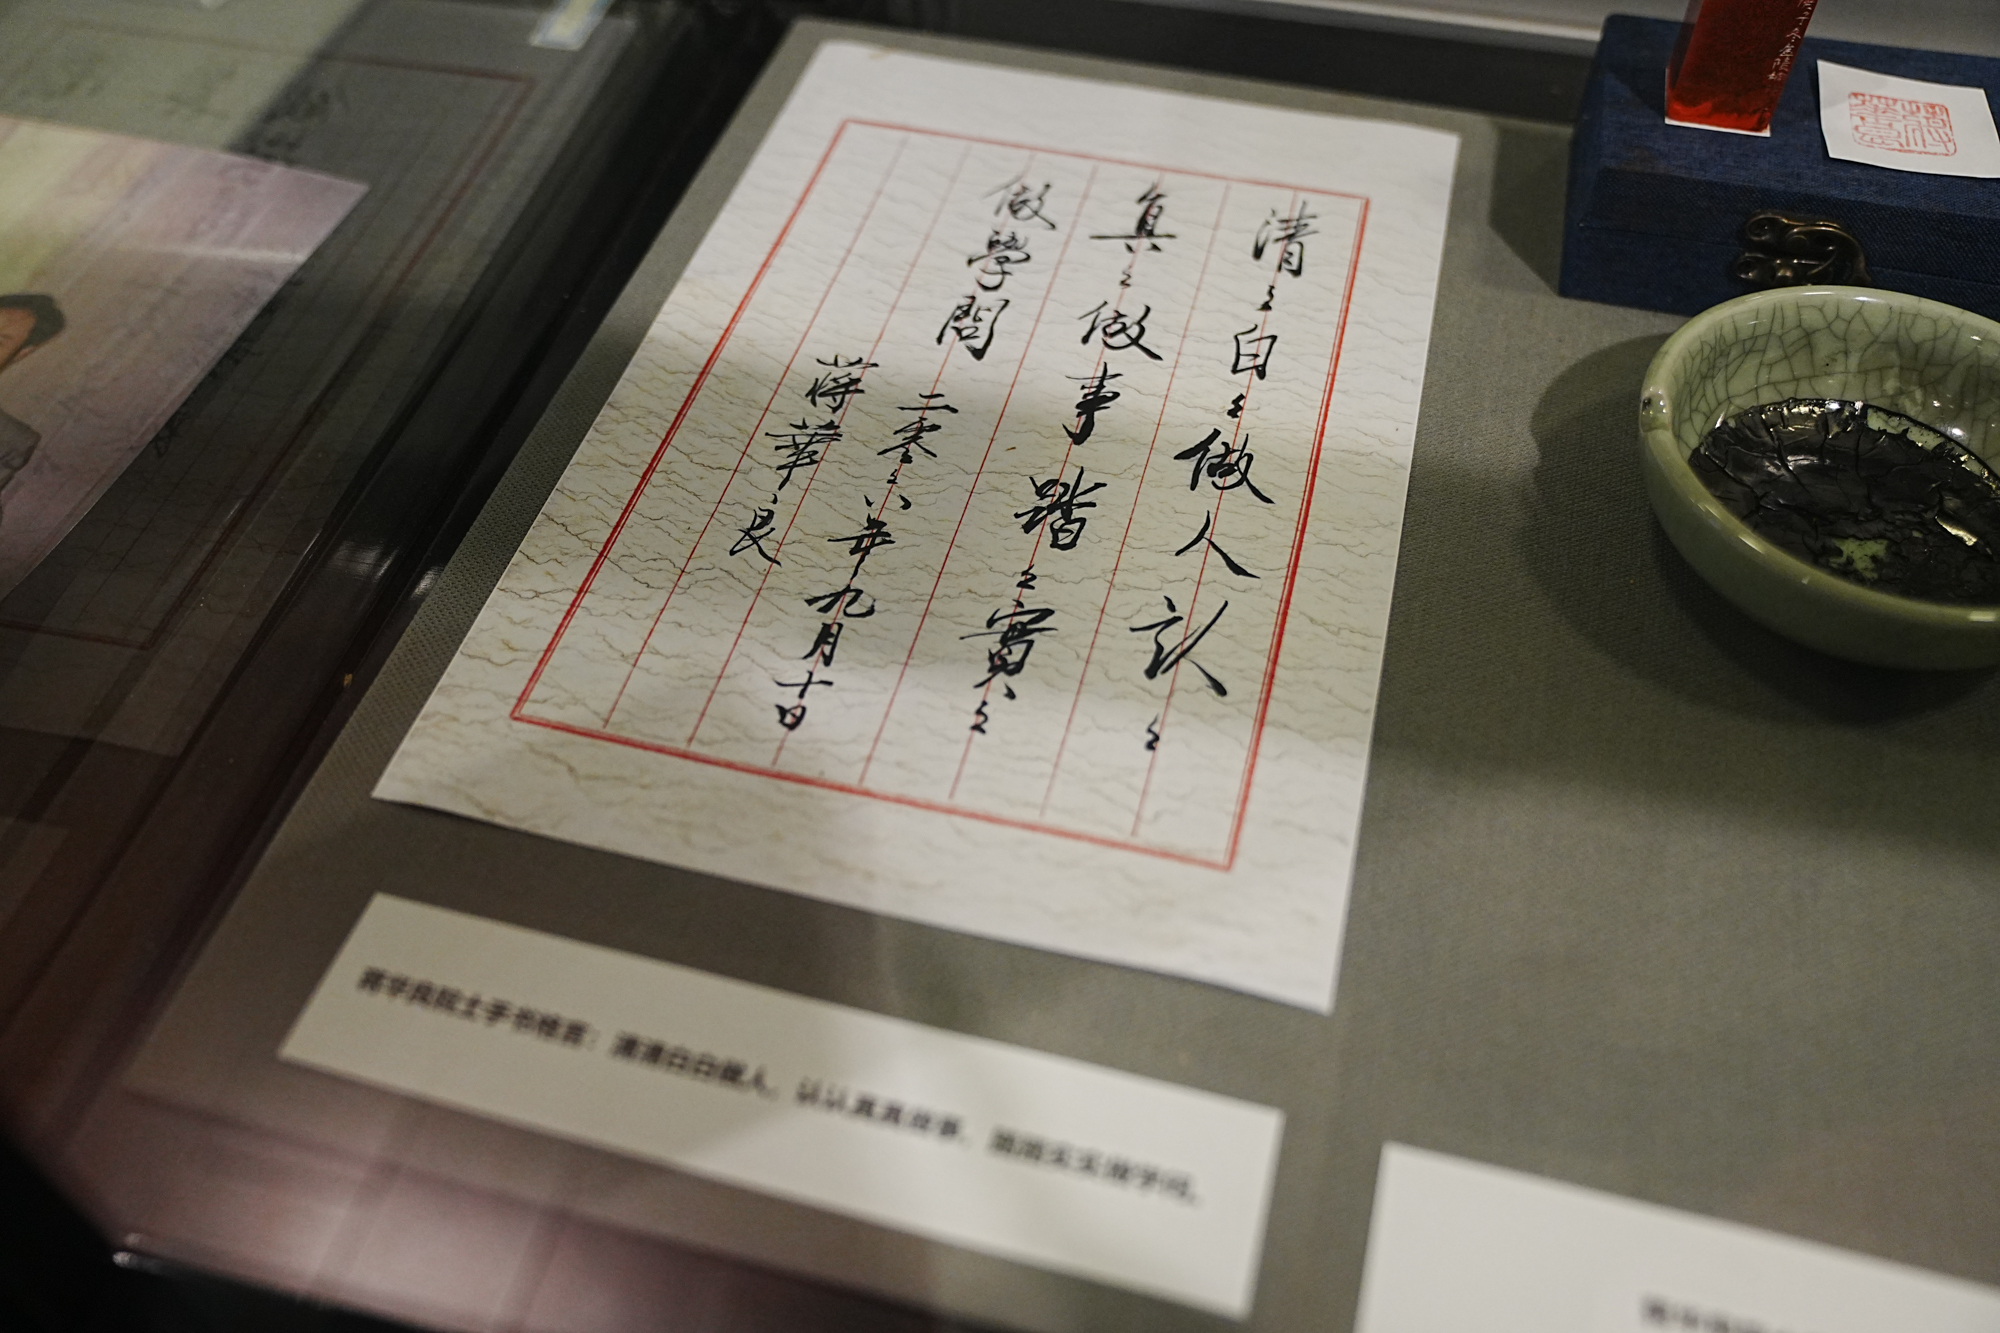 清〻白〻做人認〻
真〻做事踏〻實〻
做學問
二零〻六年九月十日
蔣華良
蒋华良院士手书格言：清清白白做人，认认真真做事，踏踏实实做学问。